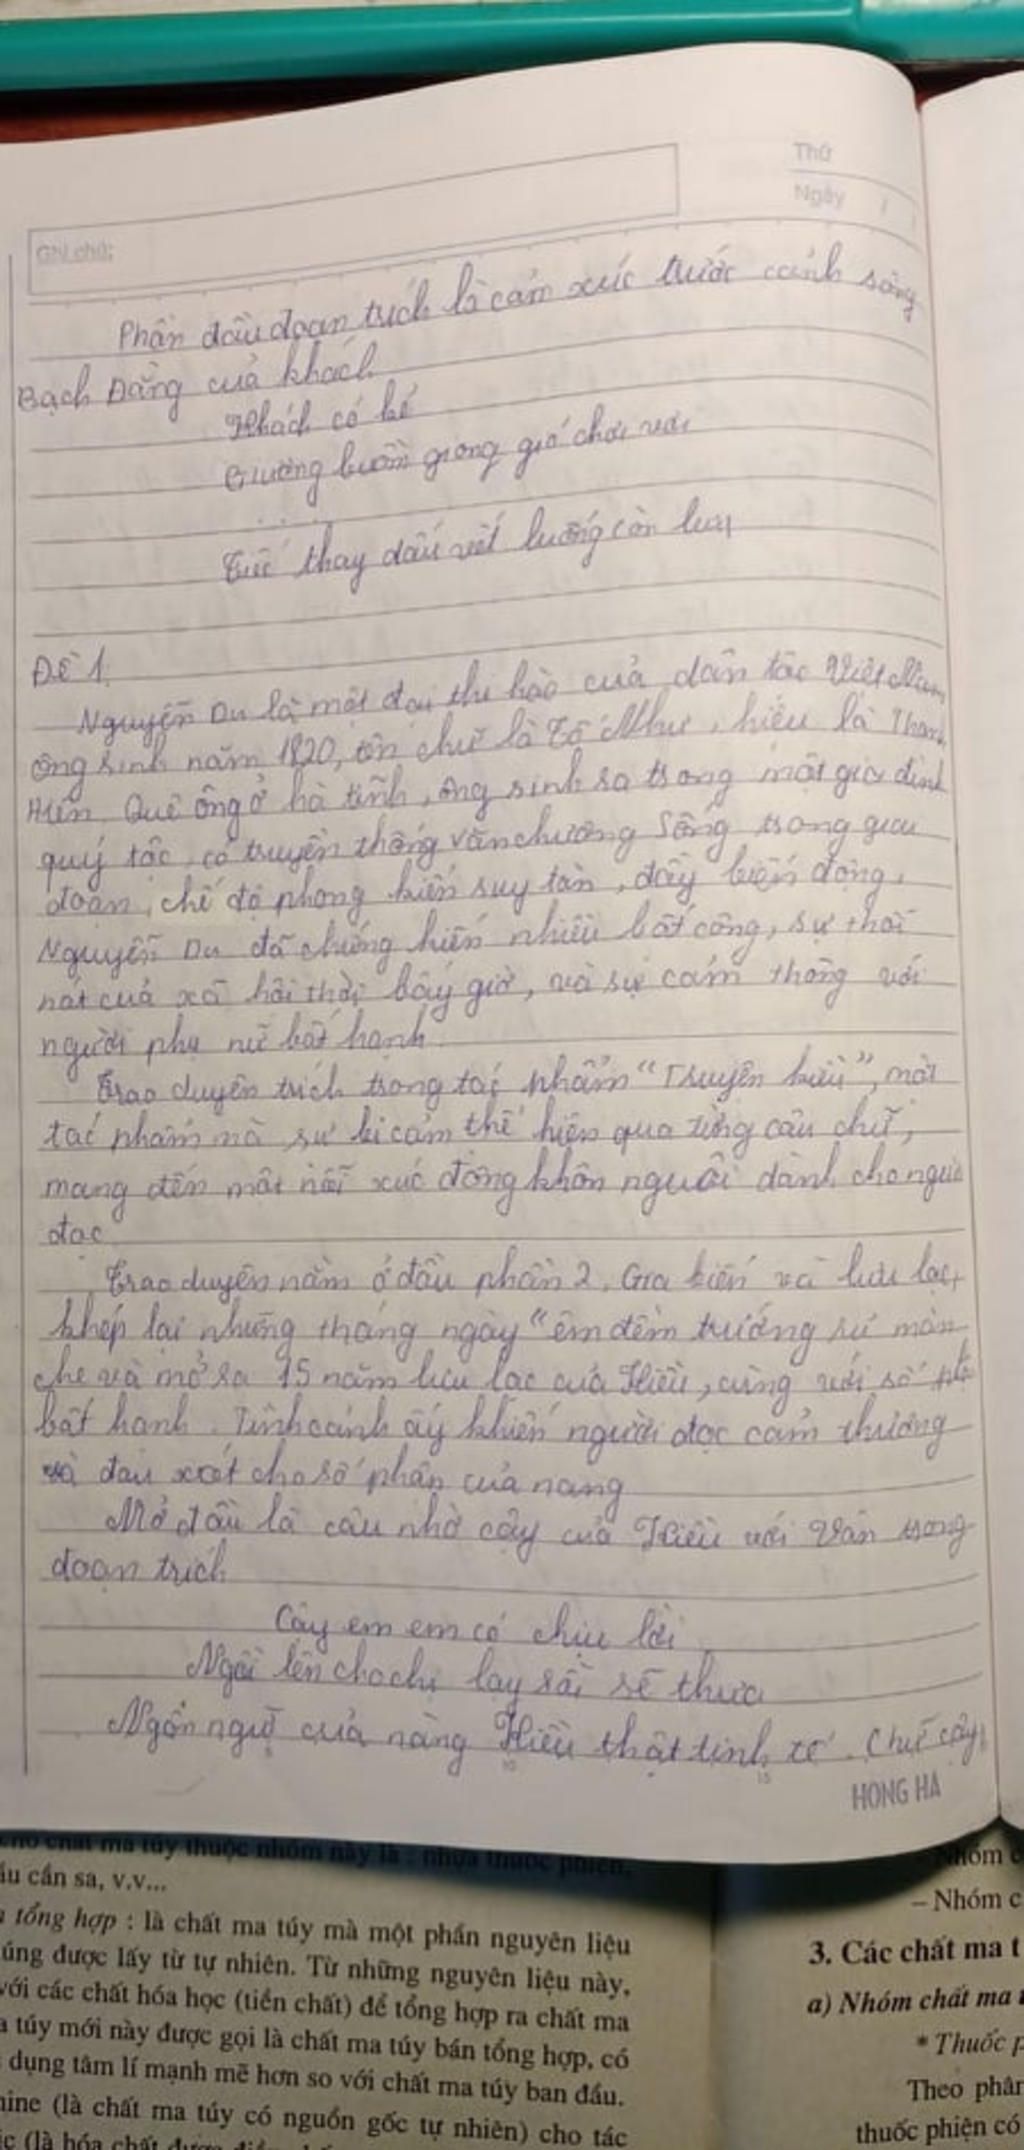 Thứ
Ngày / /
Ghi chú:
Phần đầu đoạn trích là cảm xúc trước cảnh sông
Bạch Đằng của khách
Khách có kẻ
Giương buồm giong gió chơi vơi
...
Tiếc thay dấu vết luống còn lưu
Đề 1.
Nguyễn Du là một đại thi hào của dân tộc Việt Nam,
ông sinh năm 1820, tên chữ là Tố Như, hiệu là Thanh
Hiên. Quê ông ở hà tĩnh, ông sinh ra trong một gia đình
quý tộc, có truyền thống văn chương Sống trong giai
đoạn, chế độ phong kiến suy tàn, đầy biến động,
Nguyễn Du đã chứng kiến nhiều bất công, sự thối
nát của xã hội thời bấy giờ, và sự cảm thông với
người phụ nữ bất hạnh.
Trao duyên trích trong tác phẩm "Truyện kiều", một
tác phẩm mà sự bi cảm thể hiện qua từng câu chữ,
mang đến một nỗi xúc động khôn nguôi dành cho người
đọc
Trao duyên nằm ở đầu phần 2, Gia biến và lưu lạc,
khép lại những tháng ngày "êm đềm trướng rủ màn
che và mở ra 15 năm lưu lạc của Kiều, cùng với số
bất hạnh. Tình cảnh ấy khiến người đọc cảm thương
và đau xót cho số phận của nàng
Mở đầu là câu nhờ cậy của Kiều với Vân trong
đoạn trích
Cậy em em có chịu lời
Ngồi lên cho chị lạy rồi sẽ thưa
Ngôn ngữ của nàng Kiều thật tinh tế. Chữ cậy
10 15
HONG HA
cho chất ma túy thuộc nhóm này là : nhựa thuốc phiện,
ầu cần sa, v.v...
tổng hợp : là chất ma túy mà một phần nguyên liệu
úng được lấy từ tự nhiên. Từ những nguyên liệu này,
với các chất hóa học (tiền chất) để tổng hợp ra chất ma
a túy mới này được gọi là chất ma túy bán tổng hợp, có
dụng tâm lí mạnh mẽ hơn so với chất ma túy ban đầu.
hine (là chất ma túy có nguồn gốc tự nhiên) cho tác
ic (là hóa chất được
Nhóm c
– Nhóm c
3. Các chất ma t
a) Nhóm chất ma
* Thuốc p
Theo phân
thuốc phiện có